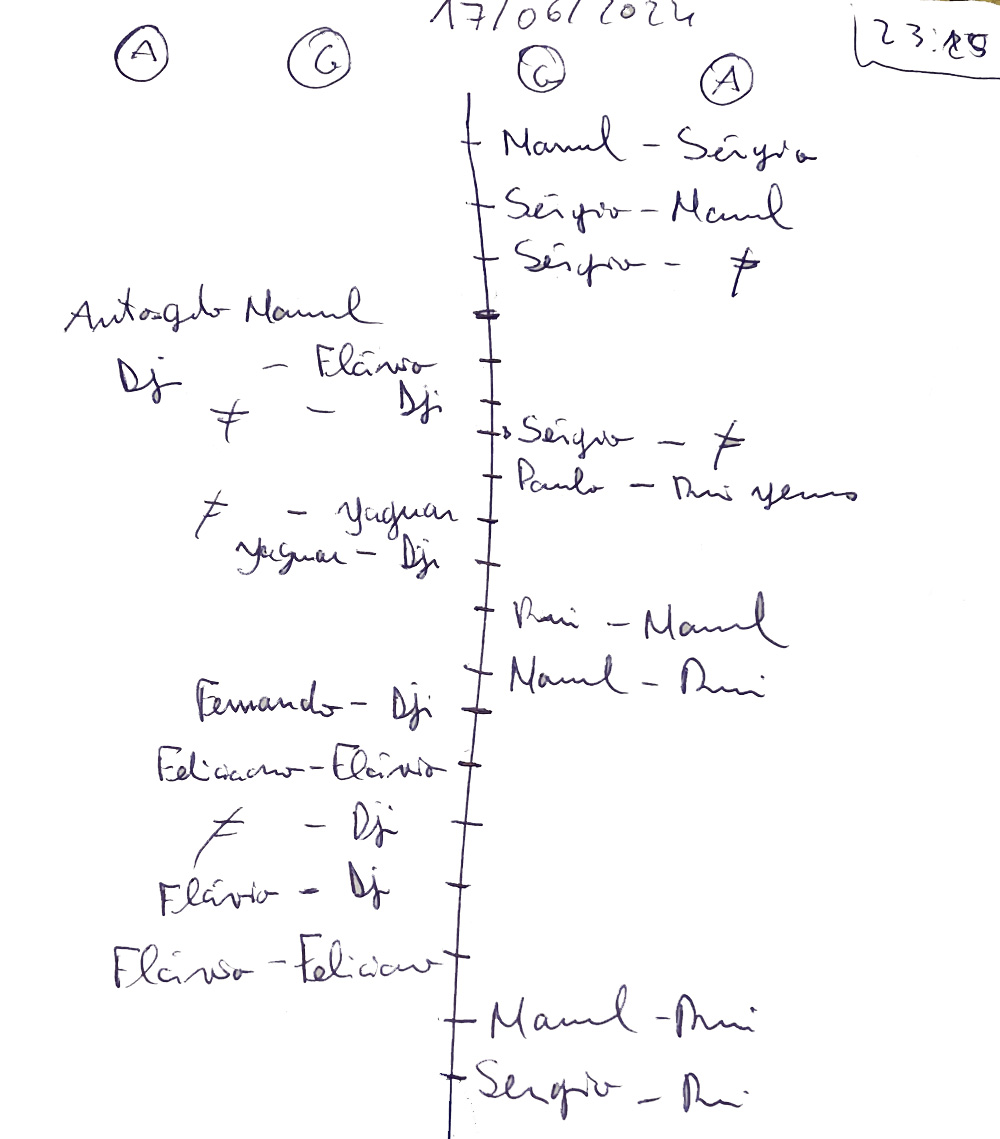 17/06/2024
23:
A G G A
Manuel - Sérgio
Sérgio - Manuel
Sérgio - ≠
Autogolo Manuel
Dj - Flávio
≠ - Dji
Sérgio - ≠
Paulo - Rui
≠ - Yaguar
Yaguar - Dji
Rui - Manuel
Manuel - Rui
Fernando - Dji
Feliciano - Flávio
≠ - Dj
Flávio - Dj
Flávio - Feliciano
Manuel - Rui
Sergio - Rui